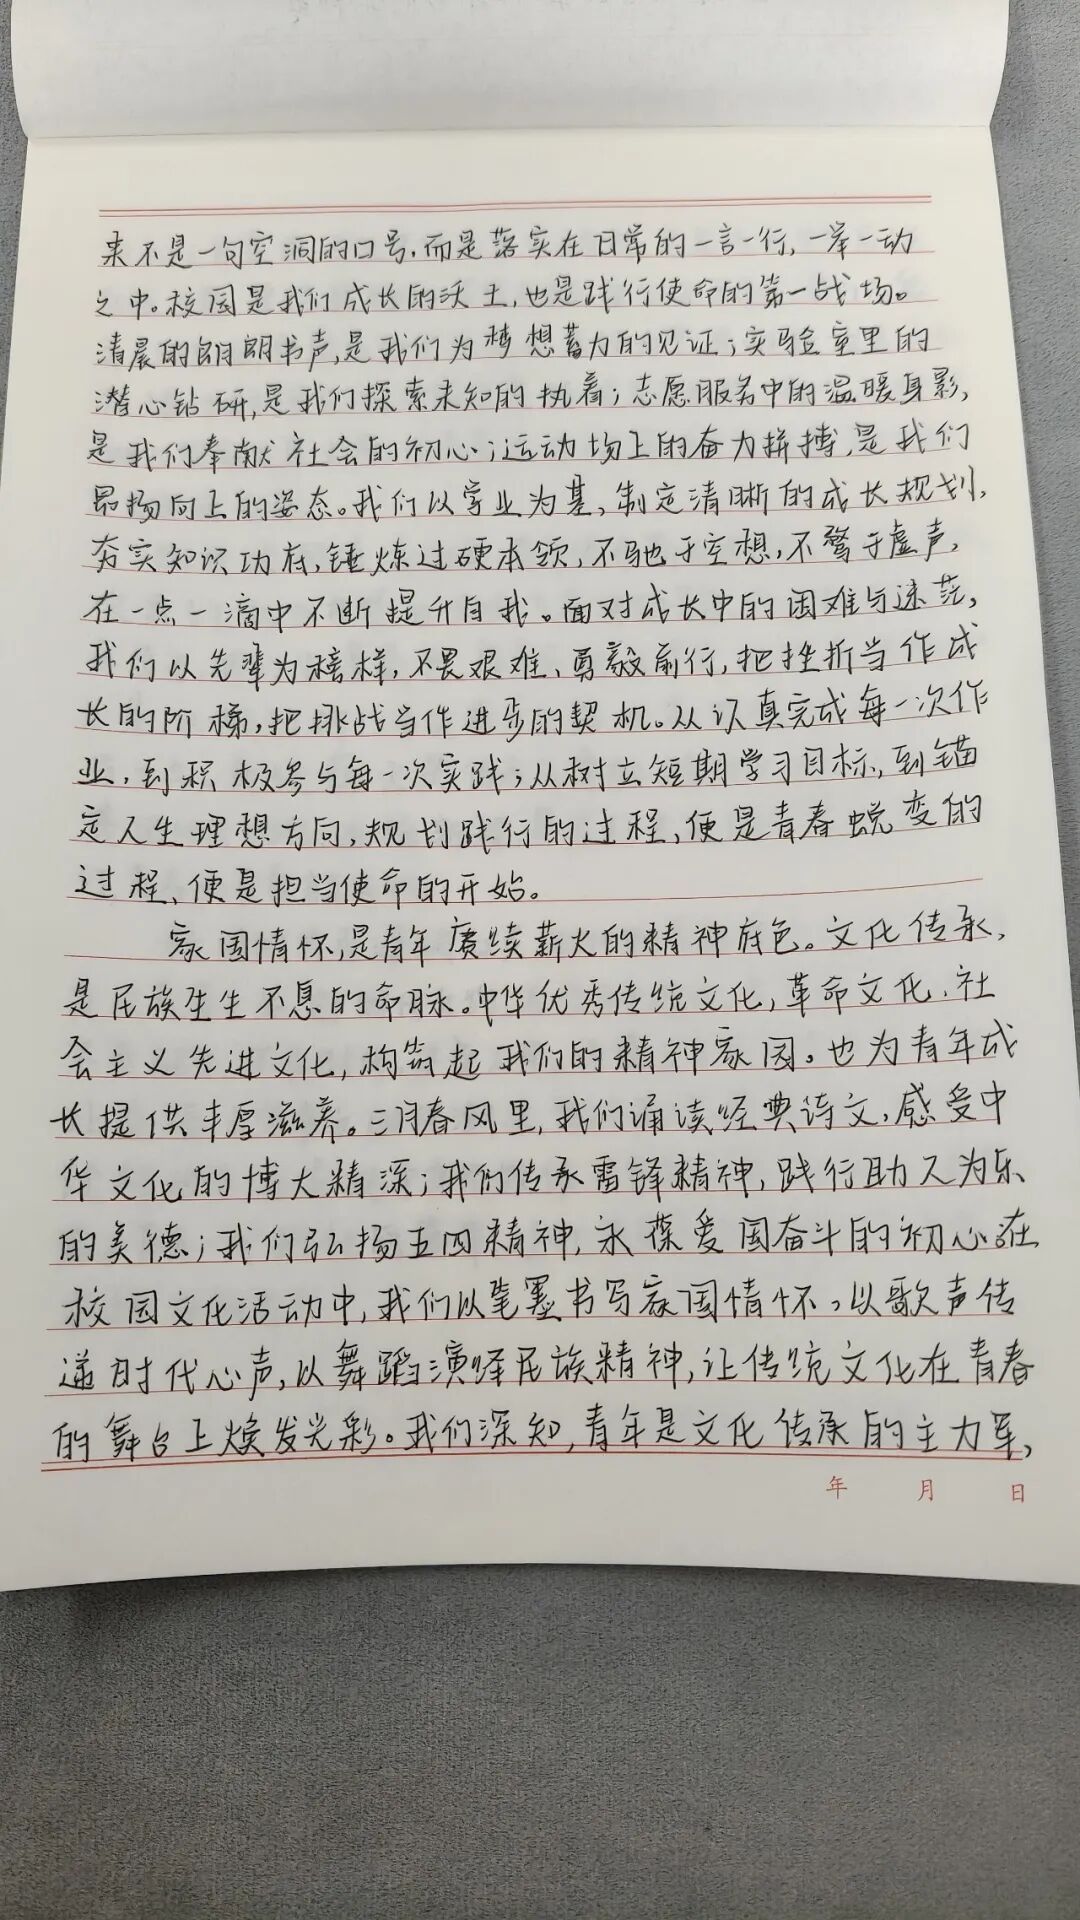 来不是一句空洞的口号，而是落实在日常的一言一行，一举一动
之中。校园是我们成长的沃土，也是践行使命的第一战场。
清晨的朗朗书声，是我们为梦想蓄力的见证；实验室里的
潜心钻研，是我们探索未知的执着；志愿服务中的温暖身影，
是我们奉献社会的初心；运动场上的奋力拼搏，是我们
昂扬向上的姿态。我们以学业为基，制定清晰的成长规划，
夯实知识功底，锤炼过硬本领，不驰于空想，不骛于虚声，
在一点一滴中不断提升自我。面对成长中的困难与迷茫，
我们以先辈为榜样，不畏艰难、勇毅前行，把挫折当作成
长的阶梯，把挑战当作进步的契机。从认真完成每一次作
业，到积极参与每一次实践；从树立短期学习目标，到锚
定人生理想方向，规划践行的过程，便是青春蜕变的
过程、便是担当使命的开始。
家国情怀，是青年赓续薪火的精神底色。文化传承，
是民族生生不息的命脉。中华优秀传统文化，革命文化、社
会主义先进文化，构筑起我们的精神家园。也为青年成
长提供丰厚滋养。三月春风里，我们诵读经典诗文，感受中
华文化的博大精深；我们传承雷锋精神，践行助人为乐
的美德；我们弘扬五四精神，永葆爱国奋斗的初心。在
校园文化活动中，我们以笔墨书写家国情怀，以歌声传
递时代心声，以舞蹈演绎民族精神，让传统文化在青春
的舞台上焕发光彩。我们深知，青年是文化传承的主力军，
年 月 日